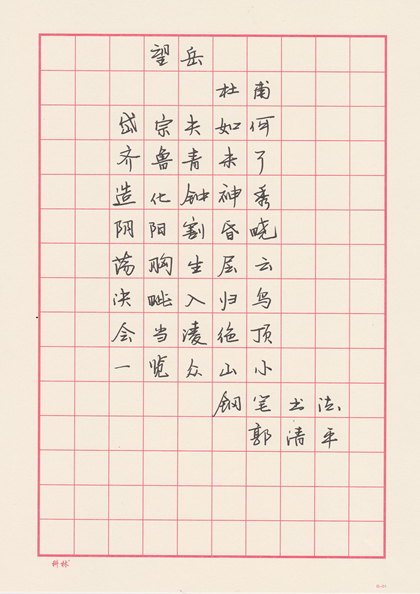 望岳
杜甫
岱宗夫如何
齐鲁青未了
造化钟神秀
阴阳割昏晓
荡胸生层云
决眦入归鸟
会当凌绝顶
一览众山小
钢笔书法
郭清平
科林